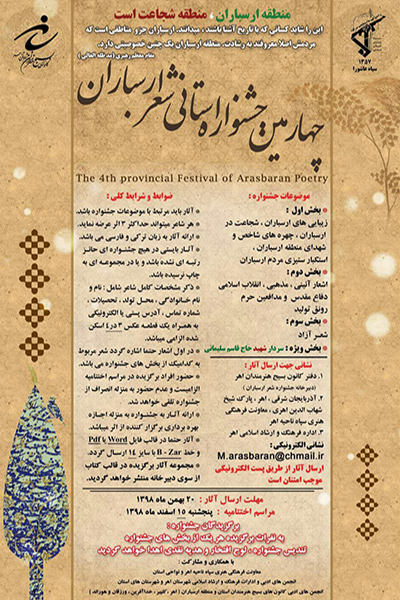 منطقه ارسباران ، منطقه شجاعت است
این را شاید کسانی که با تاریخ آشنا باشند ، میدانند. ارسباران جزو مناطقی است که
مردمش اصلاً معروفند به رشادت. منطقه ارسباران یک چنین خصوصیتی دارد.
مقام معظم رهبری (مدظله العالی)
۱۳۵۷
سپاه عاشورا
چهارمین جشنواره استانی شعر ارسباران
The 4th provincial Festival of Arasbaran Poetry
موضوعات جشنواره :
* بخش اول :
زیبایی های ارسباران ، شجاعت در
ارسباران ، چهره های شاخص و
شهدای منطقه ارسباران ،
استکبار ستیزی مردم ارسباران
* بخش دوم :
اشعار آئینی ، مذهبی ، انقلاب اسلامی
دفاع مقدس و مدافعین حرم
رونق تولید
* بخش سوم :
شعر آزاد
* بخش ویژه : سردار شهید حاج قاسم سلیمانی
نشانی جهت ارسال آثار :
۱. دفتر کانون بسیج هنرمندان اهر
(دبیرخانه جشنواره شعر ارسباران )
۲. آذربایجان شرقی ، اهر ، پارک شیخ
شهاب الدین اهری ، معاونت فرهنگی
هنری سپاه ناحیه اهر
۳. اداره فرهنگ و ارشاد اسلامی اهر
نشانی الکترونیکی:
M.arasbaran@chmail.ir
ارسال آثار از طریق پست الکترونیکی
موجب امتنان است
ضوابط و شرایط کلی :
* آثار باید مرتبط با موضوعات جشنواره باشد.
* هر شاعر میتواند حداکثر ۳ اثر عرضه نماید.
* ارائه آثار به زبان ترکی و فارسی می باشد.
* آثار بایستی در هیچ جشنواره ای حائز
رتبه ای نشده باشد و یا در مجموعه ای به
چاپ نرسیده باشد.
* ذکر مشخصات کامل شاعر شامل : نام و
نام خانوادگی ، محل تولد ، تحصیلات ،
شماره تماس ، آدرس پستی یا الکترونیکی
به همراه یک قطعه عکس ۳ در ۴ اسکن
شده الزامی میباشد.
* در اول اشعار حتما اشاره گردد شعر مربوط
به کدامیک از بخش های جشنواره می باشد.
* حضور افراد برگزیده در مراسم اختتامیه
الزامیست و عدم حضور به منزله انصراف از
جشنواره تلقی خواهد شد.
* ارائه آثار به جشنواره به منزله اجازه
بهره برداری برگزار کننده از اثر میباشد.
* آثار حتما در قالب فایل Word یا Pdf
و خط B - Zar با سایز ۱۴ ارسال گردد.
* مجموعه آثار برگزیده در قالب کتاب
از سوی دبیرخانه منتشر خواهد گردید.
مهلت ارسال آثار : ۲۰ بهمن ماه ۱۳۹۸
مراسم اختتامیه : پنجشنبه ۱۵ اسفند ماه ۱۳۹۸
برگزیدگان جشنواره :
به نفرات برگزیده هر یک از بخش های جشنواره
تندیس جشنواره ، لوح افتخار و هدیه نقدی اهدا خواهد گردید
با همکاری و مشارکت :
معاونت فرهنگی هنری سپاه ناحیه اهر و نواحی استان
انجمن های ادبی و ادارات فرهنگ و ارشاد اسلامی شهرستان اهر و شهرستان های استان
انجمن های ادبی کانون های بسیج هنرمندان استان و منطقه ارسباران ( اهر ، کلیبر ، خداآفرین ، ورزقان و هوراند )